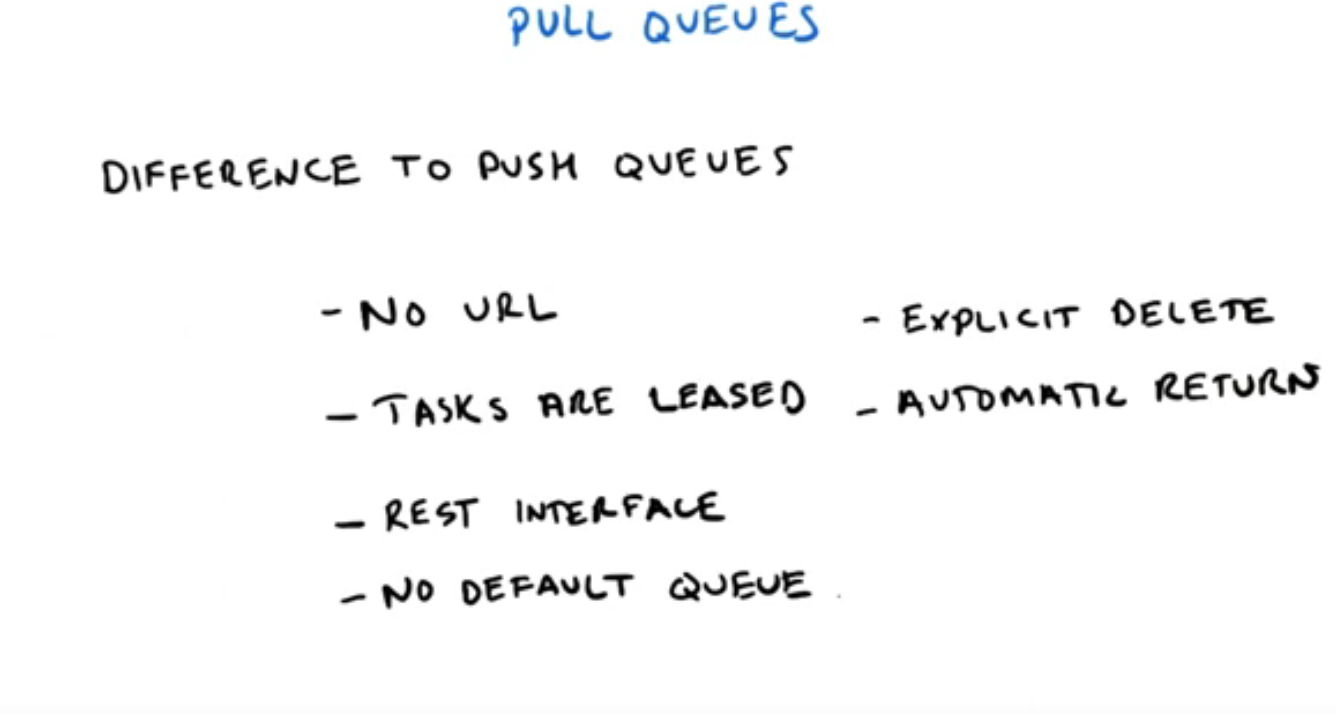 PULL QUEUES
DIFFERENCE TO PUSH QUEUES
- NO URL
- TASKS ARE LEASED
- REST INTERFACE
- NO DEFAULT QUEUE
- EXPLICIT DELETE
- AUTOMATIC RETURN